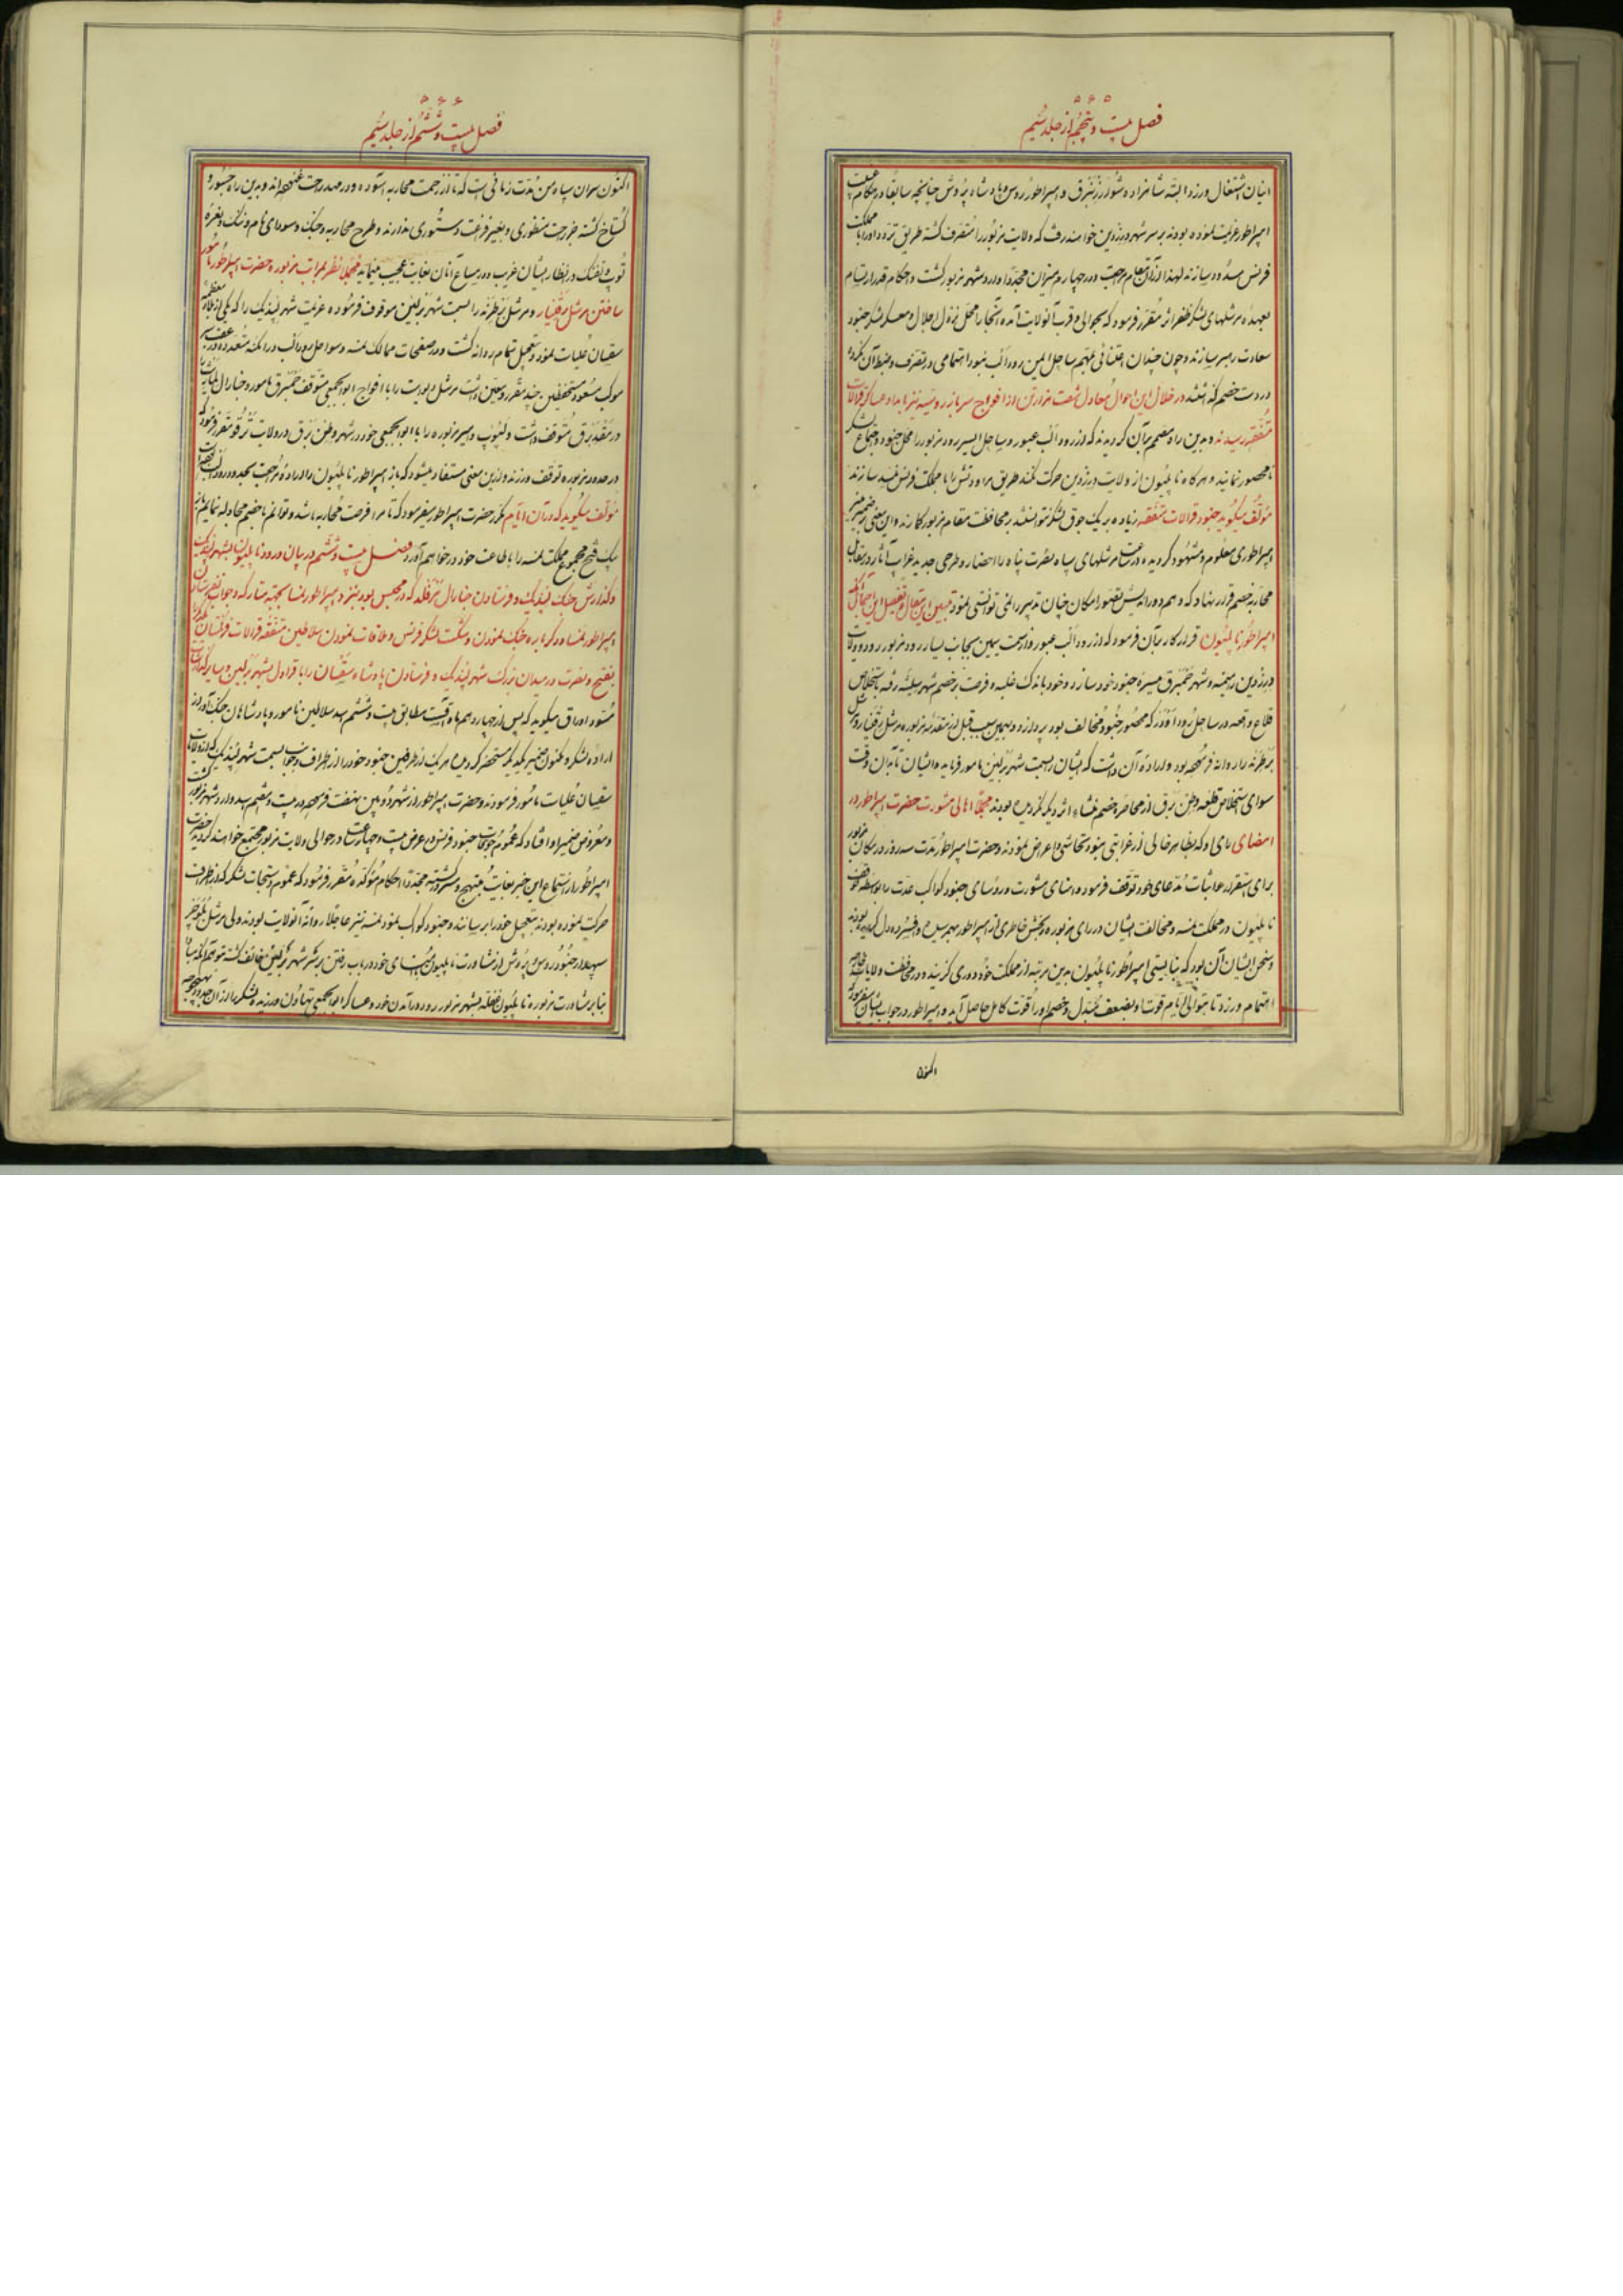 فصل بیست و پنجم از جلد سیم
اینان اشتغال ورزد البته شاهزاده شورزنبرق و امپراطور روس و پادشاه پروش چنانچه سابقا در هنگام
امپراطور عزیمت نموده بودند بر سر شهر درزدین خواهند رفت که ولایت مزبور را متصرف گشته طریق تردد او را با مملکت
فرانس مسدود سازند لهذا از آن مقام مراجعت و در چهارم میزان مجددا وارد شهر مزبور گشت و احکام
بعهده مرشلهای لشکر ظفر اثر مقرر فرمود که بحوالی و قرب آنولایت آمده آنجا را محل نزول اجلال و معسکر لشکر جنود
سعادت رهبر سازند و چون چندان اعتنائی ساحل یمین رود الب ننمود اهتمامی در تصرف و ضبط آن نکرده
در دست خصم گذاشتند در خلال این احوال معادل شصت هزار تن از افواج سرباز روسیه نیز بامداد عساکر قرالات
متفقه رسیدند و بدین راه مصمم بآن گردیدند که از رود الب عبور و ساحل ایسر رود مزبور را محل جنود و اجتماع لشکر
نامحصور نمایند و هرگاه ناپلیون از ولایت درزدین حرکت کند طریق مراودتش را با مملکت فرانس مسدود سازند
مؤلف میگوید جنود قرالات متفقه زیاده بر یک جوق لشکر نتوانستند بمحافظت مقام مزبور گمارند و این معنی بر ضمیر منیر
امپراطوری معلوم و مشهود گردیده مرشلهای سپاه نصرت پناه را احضار و طرحی جدید غرایب آثار در مقابل
محاربه خصم قرار نهاد که وهم دوراندیش تصور امکان چنان تدبیر را نمی توانستی نمود تبیین این مقال و تفصیل این اجمال آنکه
امپراطور ناپلیون قرار کار بآن فرمود که از رود الب عبور و از سمت یمین بجانب یسار رود مزبور رود و ولایت
درزدین را میمنه و شهر خمبرق میسره جنود خود سازد و خود باندک غلبه و فرصت بر خصم شهر رفته باستخلاص
قلاع واقعه در ساحل رود آودر که محصور جنود مخالف بود پردازد و بهمین سبب قبل از مقدمه مزبوره مرشل
برطرنه را روانه فرموده بود و اراده آن داشت که ایشان را بسمت شهر برلین مامور فرماید و ایشان تا بدان وقت
سوای استخلاص قلعه وطن برق از محاصره خصم منشاء اثر دیگر نگردیده بودند مجملا اهالی مشورت حضرت امپراطور در
امضای رای او که بظاهر خالی از غرابتی نبود تحاشی و اعراض نمودند و حضرت امپراطور مدت سه روز در مکان مزبور
برای استقرار و اثبات مدعای خود توقف فرمود و امنای مشورت و رؤسای جنود کواکب عدت را بواسطه
ناپلیون در مملکت نمسه و مخالفت ایشان در رای مزبوره رنجش خاطری از امپراطور بهم رسیده و افسرده دل گردیده بودند
و سخن ایشان آن بود که نبایستی امپراطور ناپلیون بدین مرتبه از مملکت خود دوری گزیند و در محافظت ولایات
اهتمام ورزد تا بتوالی ایام قوت او بضعف مبدل و خصم او را قوت کامل حاصل آید و امپراطور در جواب ایشان میفرمود که
اکنون
فصل بیست و ششم از جلد سیم
اکنون سران سپاه من مدت زمانی است که تا از زحمت محاربه آسوده و در مهد راحت غنوده اند و بدین راه جسور و
گستاخ گشته جز راحت منظوری و بغیر فراغت دستوری ندارند و طرح محاربه و جنگ و سودای نام و ننگ و نعره
توپ و تفنگ در انظار ایشان غریب و در سماع آنان بغایت عجیب مینماید مجملا نظر بمراتب مزبوره حضرت امپراطور مامور
ساختن مرشل و مرشل برطرنه را بسمت شهر برلین موقوف فرموده عزیمت شهر لپزیک را که یکی از بلاد معظمه
سقسیان علیات نمود و بتعجیل تمام روانه گشت و در صفحات ممالک نمسه و سواحل رود الب در امکنه متعدده
موکب مسعود مستحفظین چند مقرر و معین داشت مرشل داویت را با افواج ابوابجمعی متوقف خمبرق مامور و جنارال
در مغدبرق متوقف داشت و لپوپ و امیر مزبوره را با ابوابجمعی خود در شهر وطن برق و در ولایت ترقو مقرر فرمود که
در حدود مزبوره توقف ورزند و از این معنی مستفاد میشود که باز امپراطور ناپلیون را اراده مراجعت بحدود رود الب
مؤلف میگوید که در آن ایام مکرر حضرت امپراطور میفرمود که تا مرا فرصت محاربه باشد و توانم با خصم مجادله نمایم
یک فتح مجموع مملکت نمسه را باطاعت خود در خواهم آورد فصل بیست و ششم در بیان ورود ناپلیون بشهر لپزیک
و گذارش جنگ لپزیک و فرستادن جنارال مرفلد که در محبس بود بنزد امپراطور نمسا بجهت متارکه و جواب
امپراطور نمسا و دگر باره جنگ نمودن و شکست لشکر فرانس و ملاقات نمودن سلاطین متفقه قرالات فرنگستان
بفتح و نصرت در میدان بزرگ شهر لپزیک و فرستادن پادشاه سقسیان را با قراول بشهر برلین و سایر گذارشات
مسود اوراق میگوید که پس از چهاردهم ماه اقست مطابق بیست و ششم اسد سلاطین نامور و پادشاهان جنگ آور از
اراده لشکر و مکنون ضمیر یکدیگر مستحضر گردیده هر یک از طرفین جنود خود را از اطراف و جوانب بسمت شهر لپزیک که از ولایات
سقسیان علیات مامور فرمودند و حضرت امپراطور از شهر دوبین نهضت فرموده در بیست و هشتم اسد وارد شهر مزبور گشت
و معروض ضمیر او افتاد که عموم جوقات جنود فرانس در عرض بیست و چهار ساعت در حوالی ولایت مزبور مجتمع خواهند گردید حضرت
امپراطور از استماع این خبر بغایت مبتهج و مسرور گشته مجددا احکام مؤکده مقرر فرمود که عموم دستجات لشکر که از اطراف
حرکت نموده بودند بتعجیل خود را برسانند و جنود کواکب نمود نمسه نیز عاجلا روانه آنولایت بودند ولی مرشل بلوخر
سپهدار جنود روس و پروش از مشاورت ناپلیون با امنای خود در باب رفتن بر سر شهر برلین خائف گشته متوهم
بنابر مشاورت مزبوره ناپلیون غفلة بشهر مزبور رود در آمدن خود و عساکر ابوابجمعی تهاون ورزیده لشکر را از آن حدود